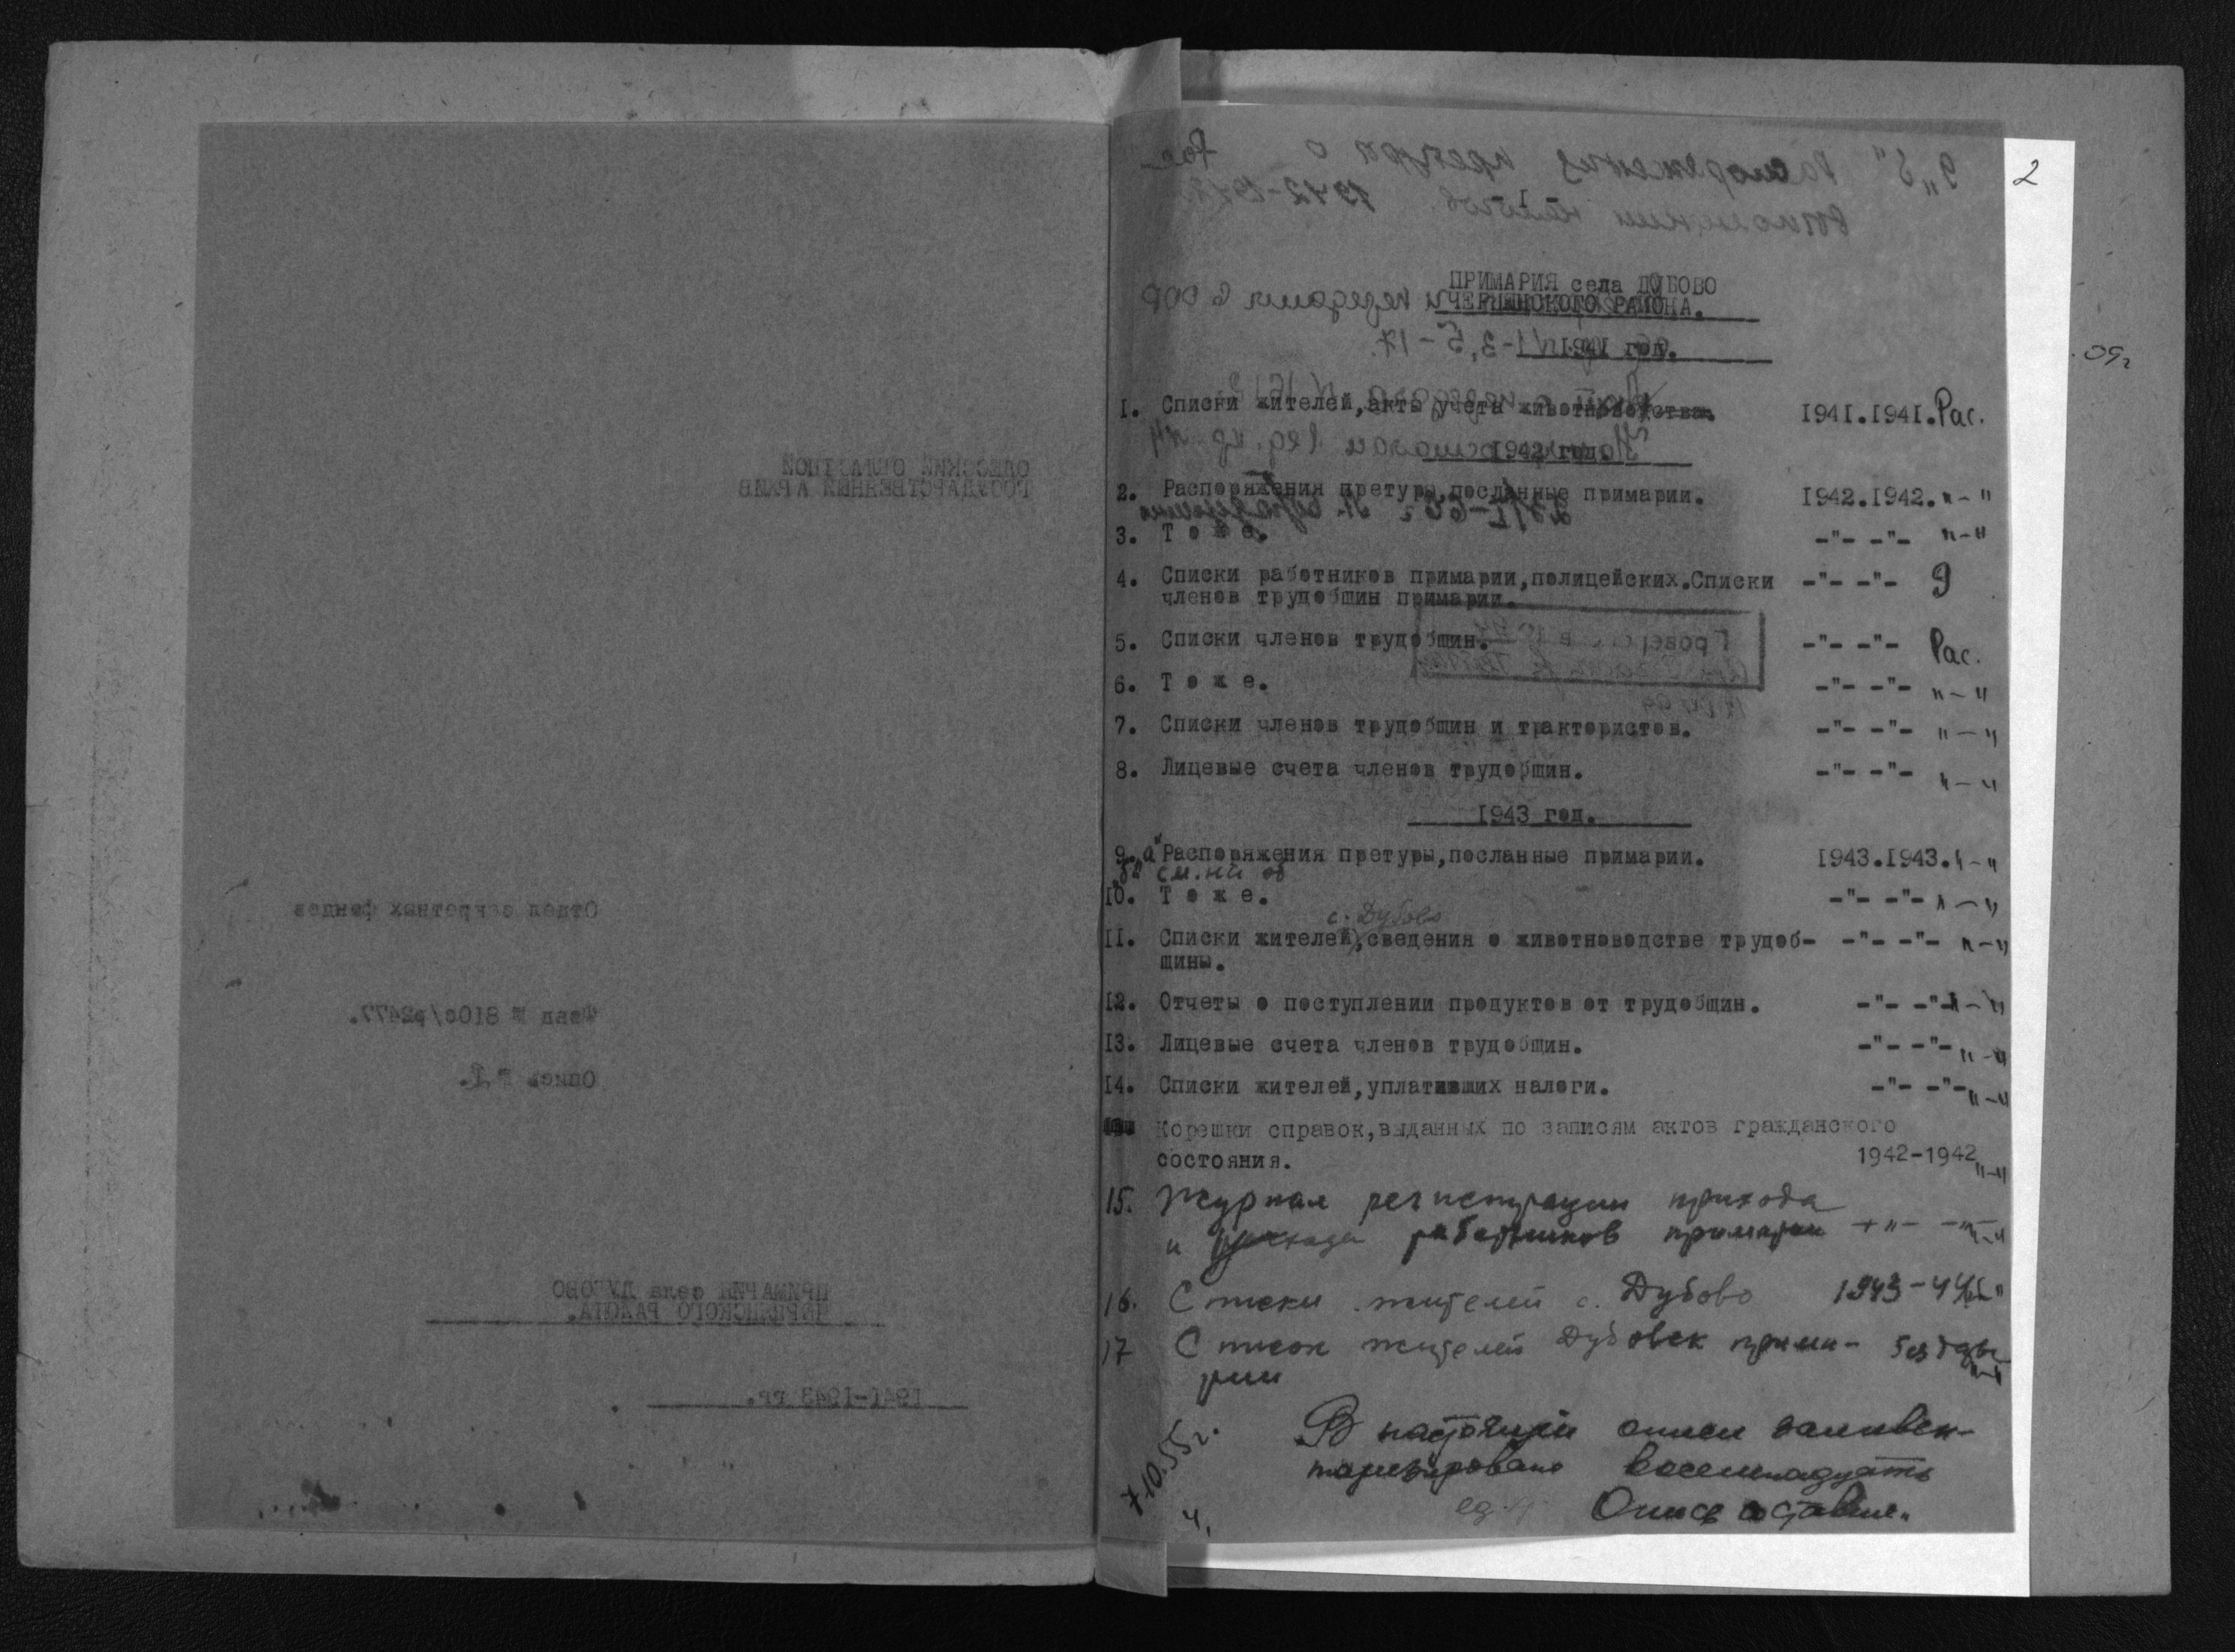 ОДЕССКИЙ ОБЛАСТНОЙ
ГОСУДАРСТВЕННЫЙ АРХИВ
Отдел секретных фондов
Фонд № 810с/р2477.
Опись № I.
ПРИМАРИИ села ДУБОВО
ЧЕРНЯНСКОГО РАЙОНА.
1941-1943 гг.
2
9 "б" Распоряжения претуры о
выполнении налогов. 1942-
ПРИМАРИЯ села ДУБОВО
ЧЕРНЯНСКОГО РАЙОНА.
1941 год.
I. Списки жителей,акты учета животноводства. I94I.I94I. Рас.
1942 год.
2. Распоряжения претуры,посланные примарии. I942.I942. "-"
3. Т о ж е. -"- -"- "-"
4. Списки работников примарии,полицейских.Списки -"- -"- 9
членов трудобщин примарии.
5. Списки членов трудобщин. -"- -"- Рас.
6. Т о ж е. -"- -"- "-"
7. Списки членов трудобщин и трактористов. -"- -"- "-"
8. Лицевые счета членов трудобщин. -"- -"- "-"
I943 год.
9. "а" Распоряжения претуры,посланные примарии. I943.I943. "-"
"б" см. на об
I0. Т о ж е. -"- -"- "-"
с. Дубово
II. Списки жителей,сведения о животноводстве трудоб- -"- -"- "-"
щины.
I2. Отчеты о поступлении продуктов от трудобщин. -"- -"- "-"
I3. Лицевые счета членов трудобщин. -"- -"- "-"
I4. Списки жителей,уплативших налоги. -"- -"- "-"
Корешки справок,выданных по записям актов гражданского
состояния. 1942-1942 "-"
15. Журнал регистрации прихода
и ухода работников примарии -"- -"- "-"
16. Списки жителей с. Дубово 1943-44
17 Список жителей Дубовск прима- без даты
рии "-"
В настоящей описи заинвен-
таризировано восемнадцать
ед.
Опись составил.
7.10.55г.
09г